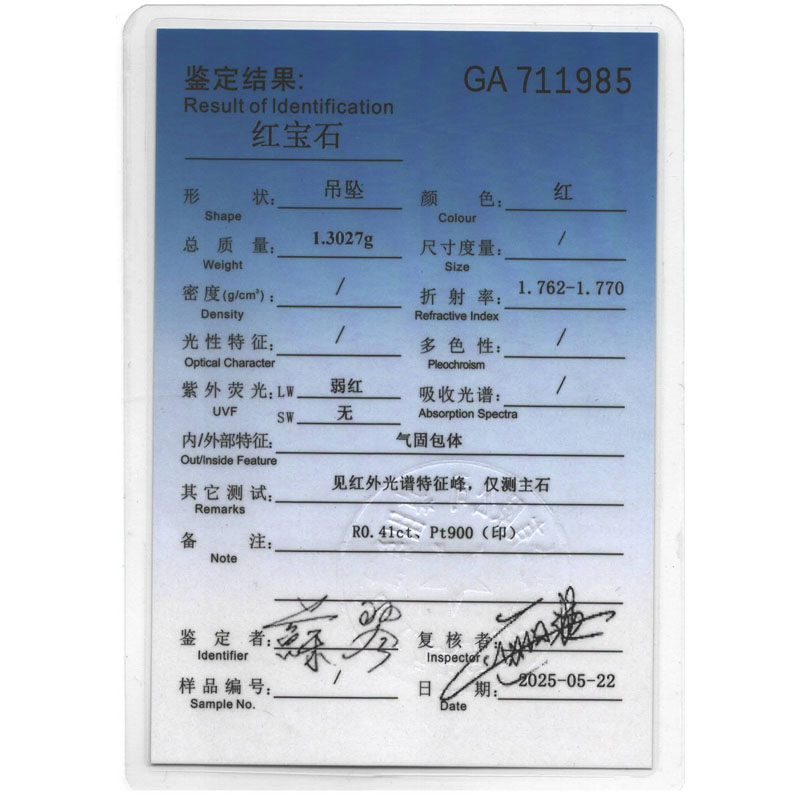 鉴定结果:
GA 711985
Result of Identification
红宝石
形 状: 吊坠
Shape
颜 色: 红
Colour
总 质 量: 1.3027g
Weight
尺寸度量: /
Size
密度(g/cm³): /
Density
折 射 率: 1.762-1.770
Refractive Index
光性特征: /
Optical Character
多 色 性: /
Pleochroism
紫外荧光: LW 弱红
UVF SW 无
吸收光谱: /
Absorption Spectra
内/外部特征: 气固包体
Out/Inside Feature
其它测试: 见红外光谱特征峰，仅测主石
Remarks
备 注: R0.41ct、Pt900（印）
Note
鉴 定 者:
Identifier
复 核 者:
Inspector
样品编号:
Sample No.
日 期: 2025-05-22
Date